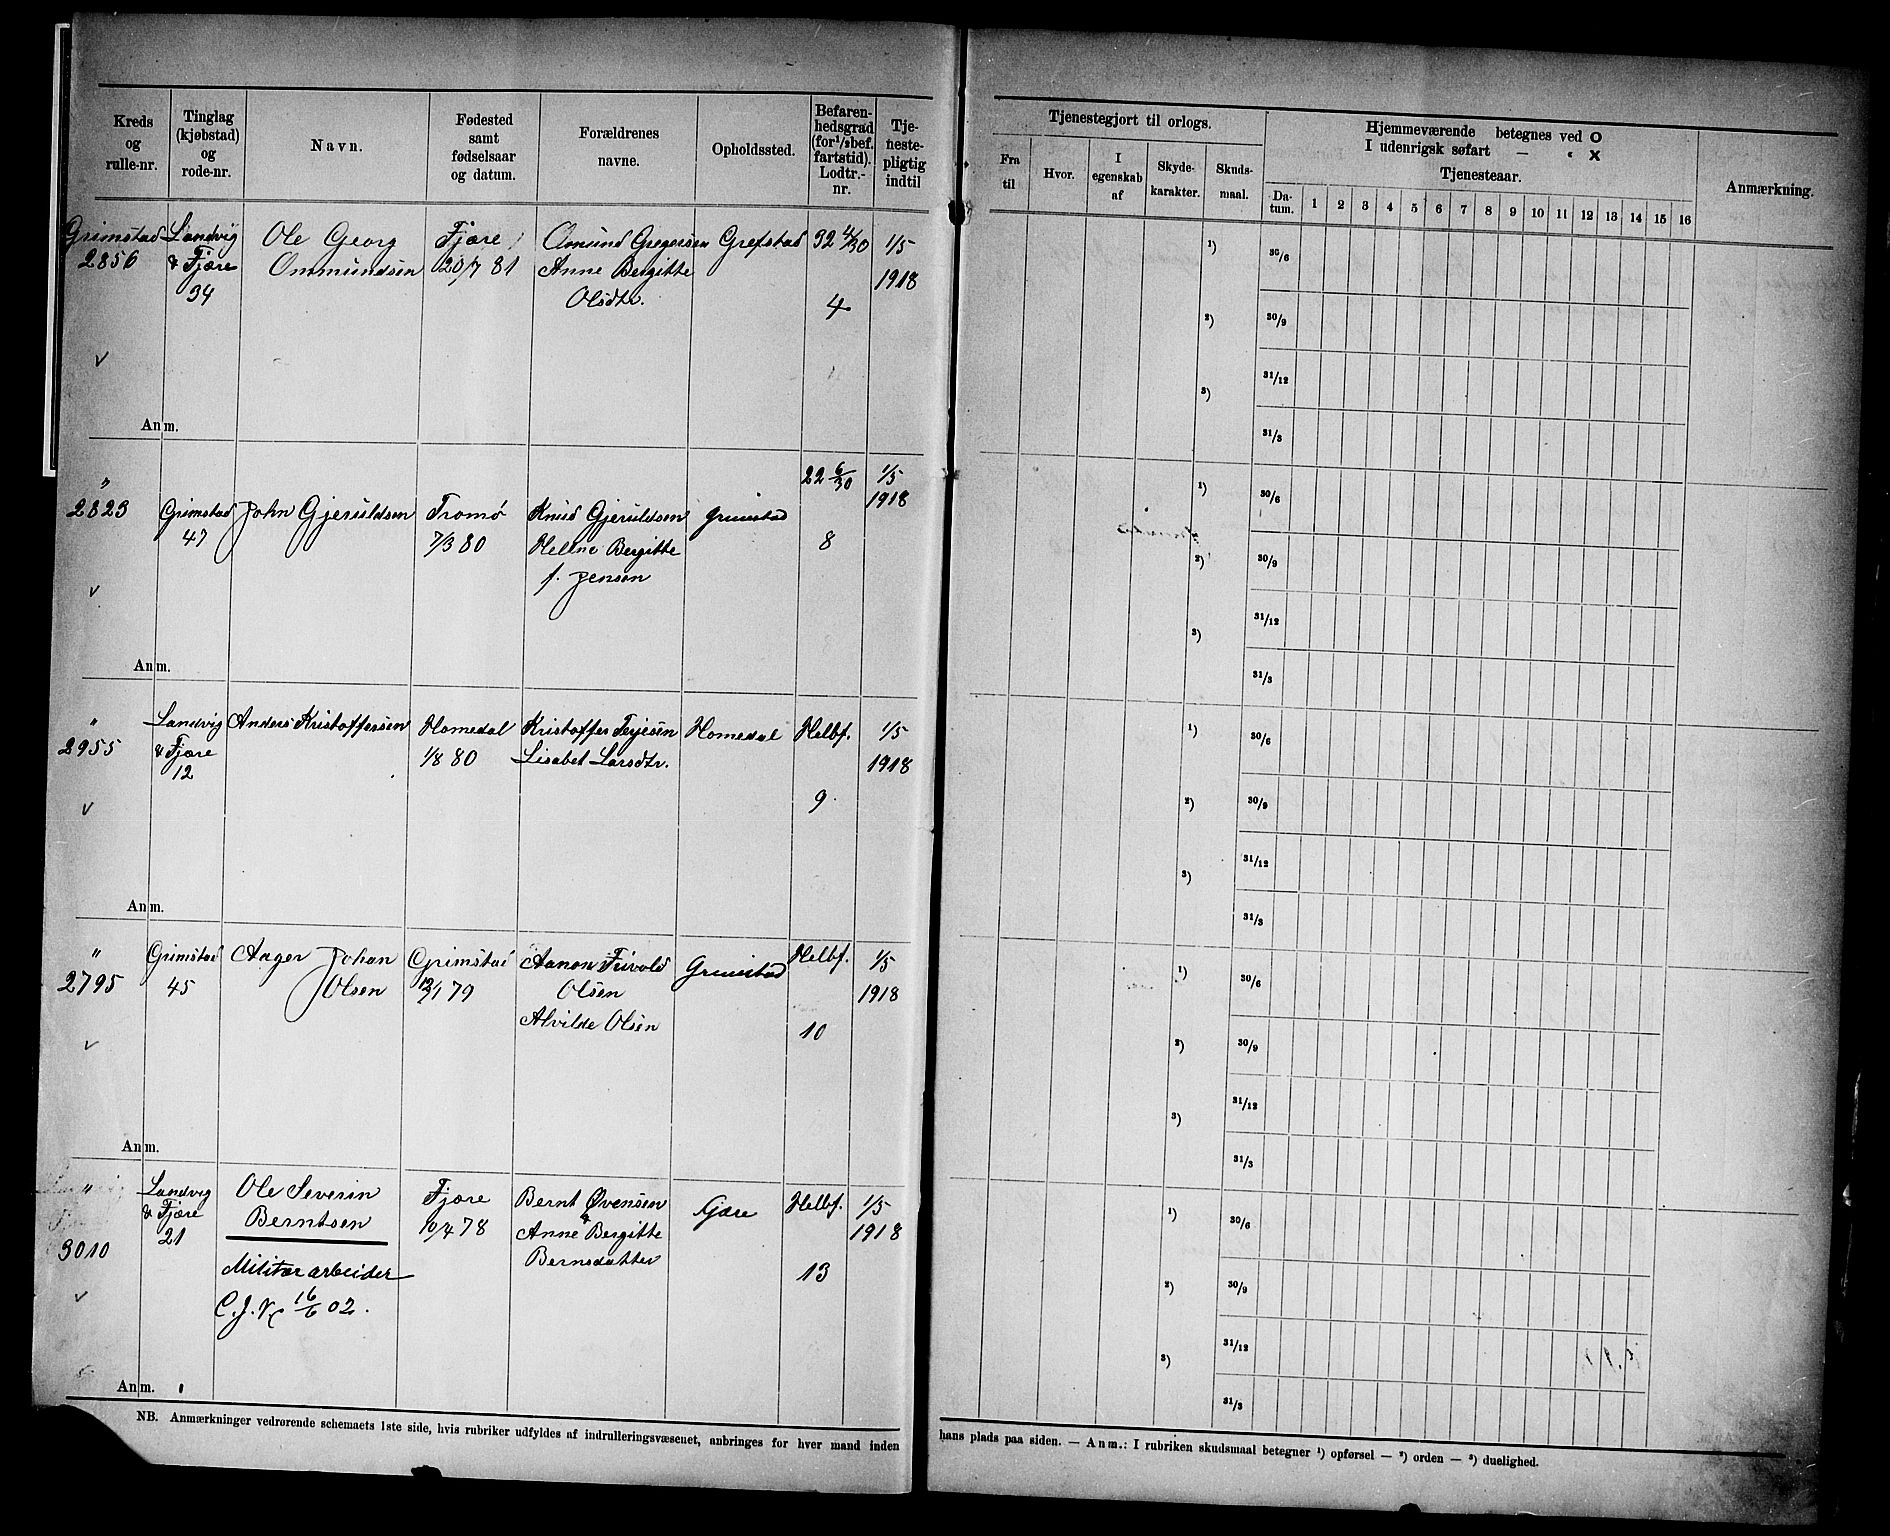 Kreds
og
rulle-nr.
Tinglag
(kjøbstad)
og
rode-nr.
Navn.
Fødested
samt
fødselsaar
og datum.
Forældrenes
navne.
Opholdssted.
Befaren-
hedsgrad
(for 1/2 bef.
fartstid).
Lodtr.-
nr.
Tje-
neste-
pligtig
indtil
Grimstad
2856
Landvig
& Fjære
34
Ole Georg
Ommundsen
Fjære
20/7 81
Omund Gregersen
Anne Bergitte
Olsdtr.
Grefstad
32 4/30
4
1/5
1918
Anm.
"
2823
Grimstad
47
John Gjeruldsen
Tromø
7/3 80
Knud Gjeruldsen
Helene Bergitte
f. Jensen
Grimstad
22 6/30
8
1/5
1918
Anm.
"
2955
Landvig
& Fjære
12
Anders Kristoffersen
Homedal
1/8 80
Kristoffer Terjesen
Lisabet Larsdtr.
Homedal
Helbf.
9
1/5
1918
Anm.
"
2795
Grimstad
45
Aager Johan
Olsen
Grimstad
12/1 79
Aanon Frivold
Olsen
Alvilde Olsen
Grimstad
Helbf.
10
1/5
1918
Anm.
"
3010
Landvig
& Fjære
21
Ole Severin
Berntsen
Militærarbeider
16/6 02.
Fjære
10/4 78
Bernt Øvensen
Anne Bergitte
Bernsdatter
Fjære
Helbf.
13
1/5
1918
Anm.
NB. Anmærkninger vedrørende schemaets 1ste side, hvis rubriker udfyldes af indrulleringsvæsenet, anbringes for hver mand inden
Tjenestegjort til orlogs.
Fra
til
Hvor.
I
egenskab
af
Skyde-
karakter.
Skuds-
maal.
Hjemmeværende betegnes ved O
I udenrigsk søfart — " X
Tjenesteaar.
Da-
tum.
1 2 3 4 5 6 7 8 9 10 11 12 13 14 15 16
Anmærkning.
1)
30/6
2)
30/9
31/12
3)
31/3
1)
30/6
2)
30/9
31/12
3)
31/3
1)
30/6
2)
30/9
31/12
3)
31/3
1)
30/6
2)
30/9
31/12
3)
31/3
1)
30/6
2)
30/9
31/12
3)
31/3
hans plads paa siden. — Anm.: I rubriken skudsmaal betegner 1) opførsel — 2) orden — 3) duelighed.